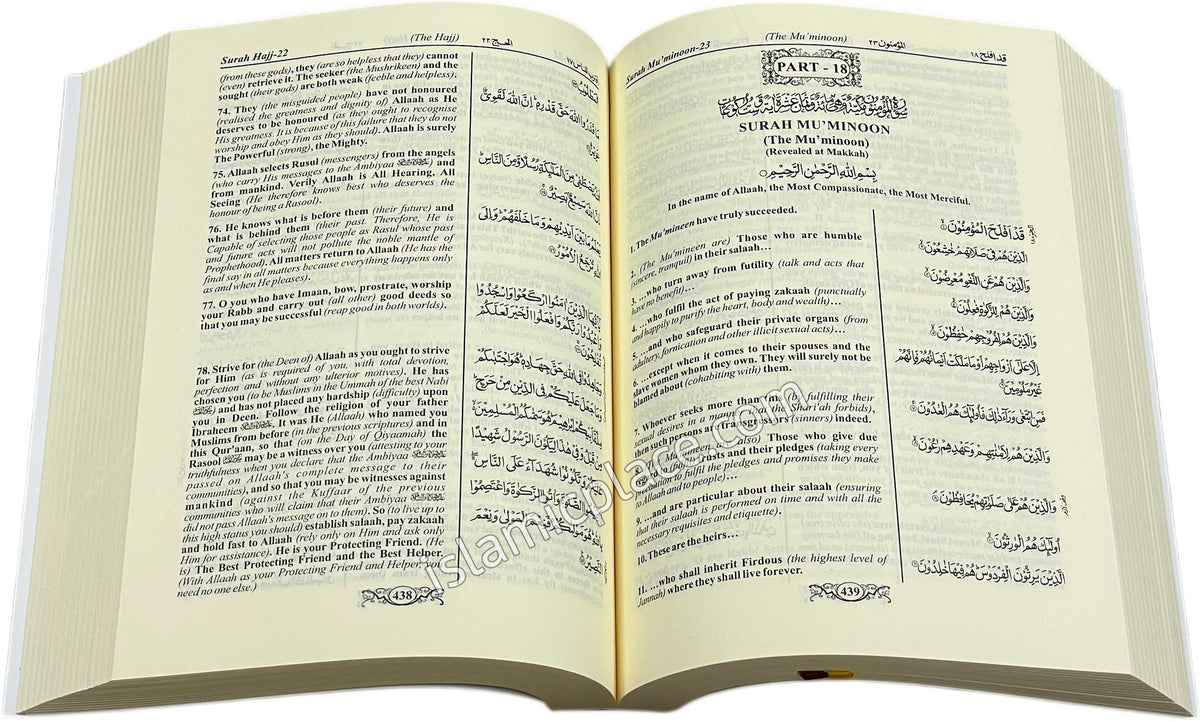 Surah Hajj-22 (The Hajj) الحج ٢٢
(from these gods), they (are so helpless that they) cannot
(even) retrieve it. The seeker (the Mushrikeen) and the
sought (their gods) are both weak (feeble and helpless).
74. They (the misguided people) have not honoured
(realised the greatness and dignity of) Allaah as He
deserves to be honoured (as they ought to recognise
His greatness. It is because of this failure that they do not
worship and obey Him as they should). Allaah is surely
The Powerful (strong), the Mighty.
75. Allaah selects Rusul (messengers) from the angels
(who carry His messages to the Ambiyaa) and
from mankind. Verily Allaah is All Hearing, All
Seeing (He therefore knows best who deserves the
honour of being a Rasool).
76. He knows what is before them (their future) and
what is behind them (their past. Therefore, He is
Capable of selecting those people as Rasul whose past
and future acts will not pollute the noble mantle of
Prophethood). All matters return to Allaah (He has the
final say in all matters because everything happens only
as and when He pleases).
77. O you who have Imaan, bow, prostrate, worship
your Rabb and carry out (all other) good deeds so
that you may be successful (reap good in both worlds).
78. Strive for (the Deen of) Allaah as you ought to strive
for Him (as is required of you, with total devotion,
perfection and without any ulterior motives). He has
chosen you (to be Muslims in the Ummah of the best Nabi
) and has not placed any hardship (difficulty) upon
you in Deen. Follow the religion of your father
Ibraheem. It was He (Allaah) who named you
Muslims from before (in the previous scriptures) and in
this Qur'aan, so that (on the Day of Qiyaamah) the
Rasool may be a witness over you (attesting to your
truthfulness when you declare that the Ambiyaa
passed on Allaah's complete message to their
communities), and so that you may be witnesses against
mankind (against the Kuffaar of the previous
communities who will claim that their Ambiyaa
did not pass Allaah's message on to them). So (to live up to
this high status you should) establish salaah, pay zakaah
and hold fast to Allaah (rely only on Him and ask only
Him for assistance). He is your Protecting Friend. (He
is) The Best Protecting Friend and the Best Helper.
(With Allaah as your Protecting Friend and Helper, you
need no one else.)
438
Surah Mu'minoon-23 (The Mu'minoon) المؤمنون ٢٣ قد افلح ١٨
PART - 18
SURAH MU'MINOON
(The Mu'minoon)
(Revealed at Makkah)
بِسْمِ اللّٰهِ الرَّحْمٰنِ الرَّحِيْمِ
In the name of Allaah, the Most Compassionate, the Most Merciful.
1. The Mu'mineen have truly succeeded.
2. (The Mu'mineen are) Those who are humble
(sincere, tranquil) in their salaah…
3. …who turn away from futility (talk and acts that
have no benefit)…
4. …who fulfil the act of paying zakaah (punctually
and happily to purify the heart, body and wealth)…
5. …and who safeguard their private organs (from
adultery, fornication and other illicit sexual acts)…
6. …except when it comes to their spouses and the
slave women whom they own. They will surely not be
blamed about (cohabiting with) them.
7. Whoever seeks more than this (by fulfilling their
sexual desires in a manner that the Shari'ah forbids),
then such persons are transgressors (sinners) indeed.
8. (The Mu'mineen are also) Those who give due
regard to their trusts and their pledges (taking every
precaution to fulfil the pledges and promises they make
to Allaah and to people)…
9. …and are particular about their salaah (ensuring
that their salaah is performed on time and with all the
necessary requisites and etiquette).
10. These are the heirs…
11. …who shall inherit Firdous (the highest level of
Jannah) where they shall live forever.
قَدْ اَفْلَحَ الْمُؤْمِنُوْنَ
الَّذِيْنَ هُمْ فِيْ صَلَاتِهِمْ خٰشِعُوْنَ
وَالَّذِيْنَ هُمْ عَنِ اللَّغْوِ مُعْرِضُوْنَ
وَالَّذِيْنَ هُمْ لِلزَّكٰوةِ فٰعِلُوْنَ
وَالَّذِيْنَ هُمْ لِفُرُوْجِهِمْ حٰفِظُوْنَ
اِلَّا عَلٰٓى اَزْوَاجِهِمْ اَوْ مَا مَلَكَتْ اَيْمَانُهُمْ فَاِنَّهُمْ
غَيْرُ مَلُوْمِيْنَ
فَمَنِ ابْتَغٰى وَرَآءَ ذٰلِكَ فَاُولٰٓئِكَ هُمُ الْعٰدُوْنَ
وَالَّذِيْنَ هُمْ لِاَمٰنٰتِهِمْ وَعَهْدِهِمْ رٰعُوْنَ
وَالَّذِيْنَ هُمْ عَلٰى صَلَوٰتِهِمْ يُحَافِظُوْنَ
اُولٰٓئِكَ هُمُ الْوٰرِثُوْنَ
الَّذِيْنَ يَرِثُوْنَ الْفِرْدَوْسَ هُمْ فِيْهَا خٰلِدُوْنَ
439
islamicplace.com